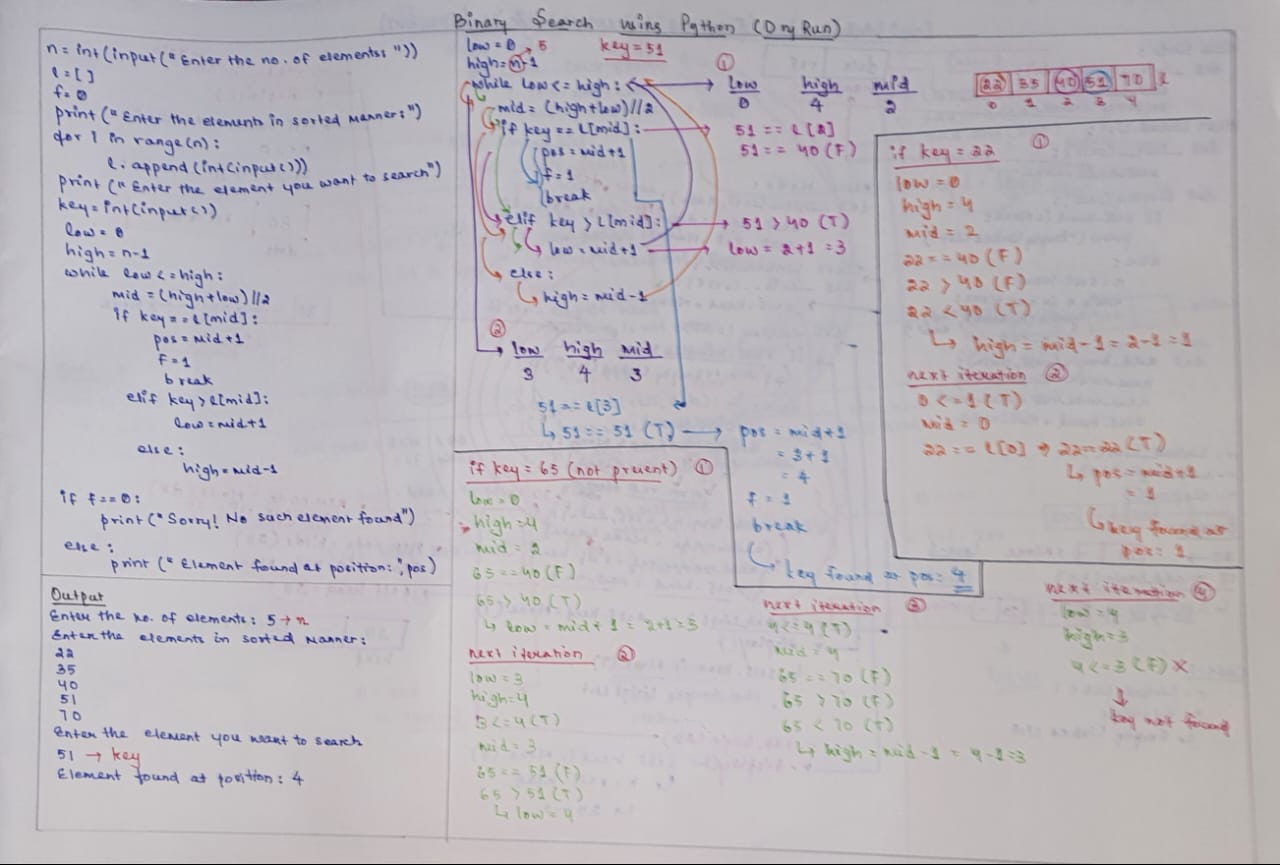 Binary Search using Python (Dry Run)
n = int(input("Enter the no. of elements: "))
l = []
f = 0
print("Enter the elements in sorted manner:")
for i in range(n):
l.append(int(input()))
print("Enter the element you want to search")
key = int(input())
low = 0
high = n-1
while low <= high:
mid = (high+low)//2
if key == l[mid]:
pos = mid+1
f = 1
break
elif key > l[mid]:
low = mid+1
else:
high = mid-1
if f == 0:
print("Sorry! No such element found")
else:
print("Element found at position:", pos)
Output
Enter the no. of elements: 5 → n
Enter the elements in sorted manner:
22
35
40
51
70
Enter the element you want to search
51 → key
Element found at position: 4
low = 0 5 key = 51
high = n-1
while low <= high:
mid = (high+low)//2
if key == l[mid]:
pos = mid+1
f = 1
break
elif key > l[mid]:
low = mid+1
else:
high = mid-1
①
low high mid
0 4 2
51 == l[2]
51 == 40 (F)
51 > 40 (T)
low = 2+1 = 3
22 35 40 51 70 l
0 1 2 3 4
②
low high mid
3 4 3
51 == l[3]
↳ 51 == 51 (T) → pos = mid+1
= 3+1
= 4
f = 1
break
↳ key found at pos: 4
if key = 22 ①
low = 0
high = 4
mid = 2
22 == 40 (F)
22 > 40 (F)
22 < 40 (T)
↳ high = mid-1 = 2-1 = 1
next iteration ②
0 <= 1 (T)
mid = 0
22 == l[0] → 22 == 22 (T)
↳ pos = mid+1
= 1
↳ key found at
pos: 1
if key = 65 (not present) ①
low = 0
high = 4
mid = 2
65 == 40 (F)
65 > 40 (T)
↳ low = mid+1 = 2+1 = 3
next iteration ②
low = 3
high = 4
3 <= 4 (T)
mid = 3
65 == 51 (F)
65 > 51 (T)
↳ low = 4
next iteration ③
4 <= 4 (T)
mid = 4
65 == 70 (F)
65 > 70 (F)
65 < 70 (T)
↳ high = mid-1 = 4-1 = 3
next iteration ④
low = 4
high = 3
4 <= 3 (F) ×
↓
key not found